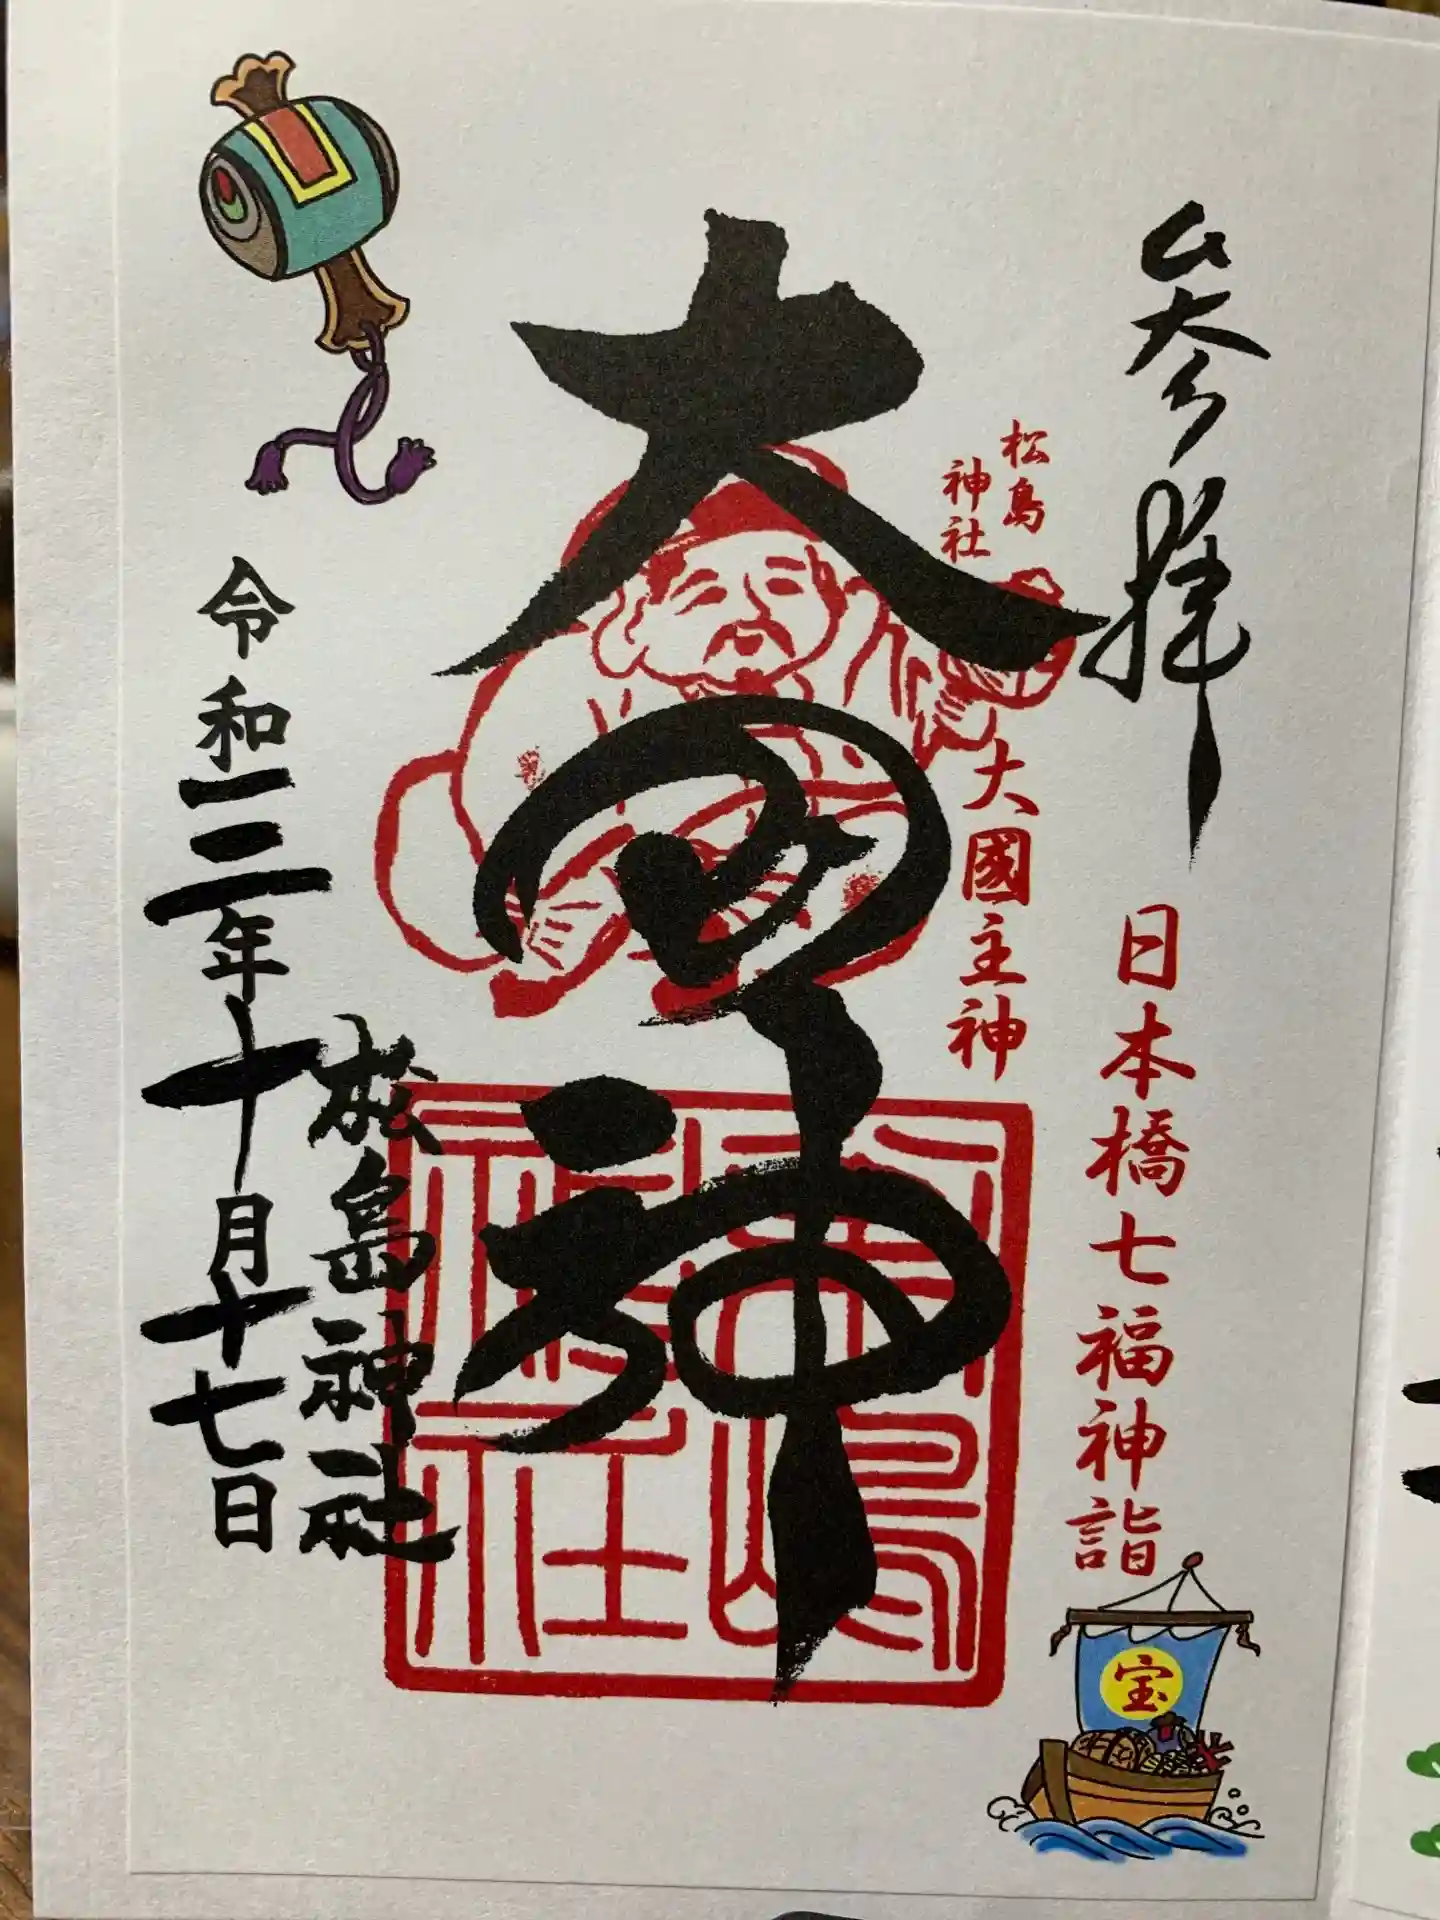 参拝
日本橋七福神詣
松島
神社
大國主神
大国神
松嶋
神社
松島神社
令和三年十月十七日
宝